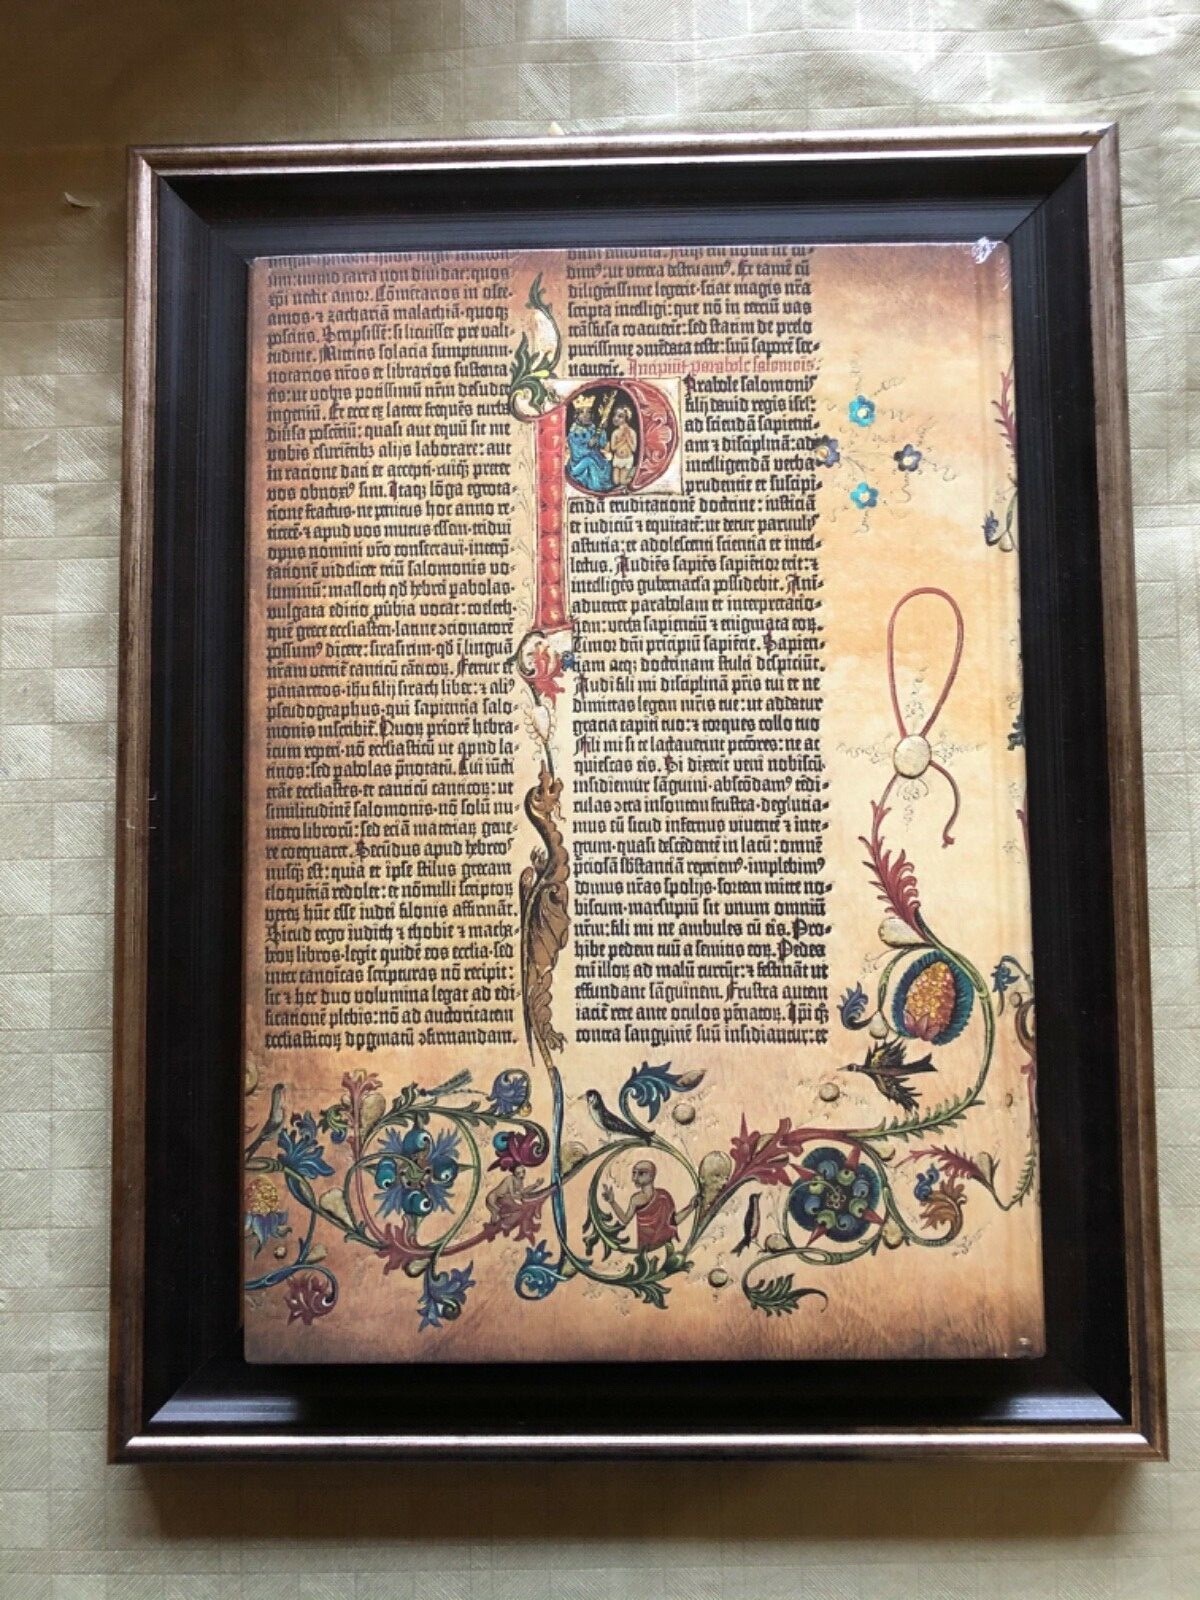 sim: immo carta non dividat: quos
xpi nectit amor. Cōmētarios in osee·
amos·⁊ zachariā malachiā·quoqʒ
poscitis. Scripsissē: si licuisset pre vali-
tudine. Mittitis solacia sumptuum·
notarios nr̄os et librarios sustenta-
tis: ut vobis potissimū nr̄m desudet
ingeniū. Et ecce ex latere frequēs turba
diūsa poscētiū: quasi aut equū sit me
vobis esuriētibʒ alijs laborare: aut
in racione dati et accepti·cuiqʒ preter
vos obnoxꝰ sim. Itaqʒ lōga egrota-
tione fractus·ne penitus hoc anno re-
ticerē·⁊ apud vos mutus essem·tridui
opus nomini vr̄o consecraui·interp̄-
tationē videlicet triū salomonis vo-
luminū: masloth qd̄ hebrei pabolas·
vulgata editio pūbia vocat: coeleth·
quē grece ecclesiasten·latine ꝯcionatorē
possumꝰ dicere: sirasirim·qd̄ ī linguā
nr̄am vertit̄ canticū cāticoꝝ. Fertur et
panaretos·ihu filij sirach liber: ⁊ aliꝰ
pseudographus·qui sapientia salo-
monis inscribit̄. Quoꝝ priorē hebra-
icum reperi·nō ecclesiasticū ut apud la-
tinos: sed pabolas p̄notatū. Cui iūcti
erāt ecclesiastes·et canticū canticoꝝ: ut
similitudinē salomonis·nō solū nu-
mero librorū: sed etiā materiaꝝ gene-
re coequaret. Secūdus apud hebreoꝰ
nusqʒ est: quia et ipse stilus grecam
eloquētiā redolet: et nōnulli scriptoꝝ
veterꝝ hūc esse iudei filonis affirmāt.
Sicud ergo iudith ⁊ thobie ⁊ macha-
beoꝝ libros·legit quidē eos ecclīa·sed
inter canonicas scripturas nō recipit:
sic ⁊ hec duo volumina legat ad edi-
ficationē plebis: nō ad auctoritatem
ecclesiasticoꝝ dogmatū ꝯfirmandam.
dimꝰ: ut vetera destruamꝰ. Et tamē cū
diligētissime legerit·sciat magis nr̄a
scripta intelligi: que nō in terciū vas
trāsfusa coacuerīt: sed statim de prelo
purissime ꝯmēdata teste: suū saporē ser-
vauerīt. Incipiūt parabole salomōis:
Parabole salomonis
filij dauid regis isrl̄:
ad sciendā sapienti-
am ⁊ disciplinā: ad
intelligendā verba
prudentie et suscipi-
endā eruditationē doctrine: iusticiā
et iudiciū ⁊ equitatē: ut detur paruulis
astutia: et adolescenti scientia et intel-
lectus. Audiēs sapiēs sapiētior erit: ⁊
intelligēs gubernacla possidebit. Ani-
aduertet parabolam et interpretatio-
nem: verba sapientiū ⁊ enigmata eoꝝ.
Timor dn̄i principiū sapiētie. Sapien-
tiam atqʒ doctrinam stulti despiciūt.
Audi fili mi disciplinā pr̄is tui et ne
dimittas legem mr̄is tue: ut addatur
gracia capiti tuo: ⁊ torques collo tuo
Fili mi si te lactauerint pctōres: ne ac
quiescas eis. Si dixerit veni nobiscū
insidiemur sāguini·abscōdamꝰ tēdi-
culas ꝯtra insontem frustra·deglutia-
mus eū sicud infernus viuentē ⁊ inte-
grum·quasi descēdentē in lacū: omnē
p̄ciosā s̄bstanciā reperiemꝰ·implebimꝰ
domus nr̄as spolijs·sortem mitte no-
biscum·marsupiū sit unum omniū
nr̄m: fili mi ne ambules cū eis. Pro-
hibe pedem tuū a semitis eoꝝ. Pedes
em̄ illoꝝ ad malū currūt: ⁊ festināt ut
effundant sāguinem. Frustra autem
iacit̄ rete ante oculos pēnatoꝝ. Ipi qʒ
contra sanguinē suū insidiantur: et